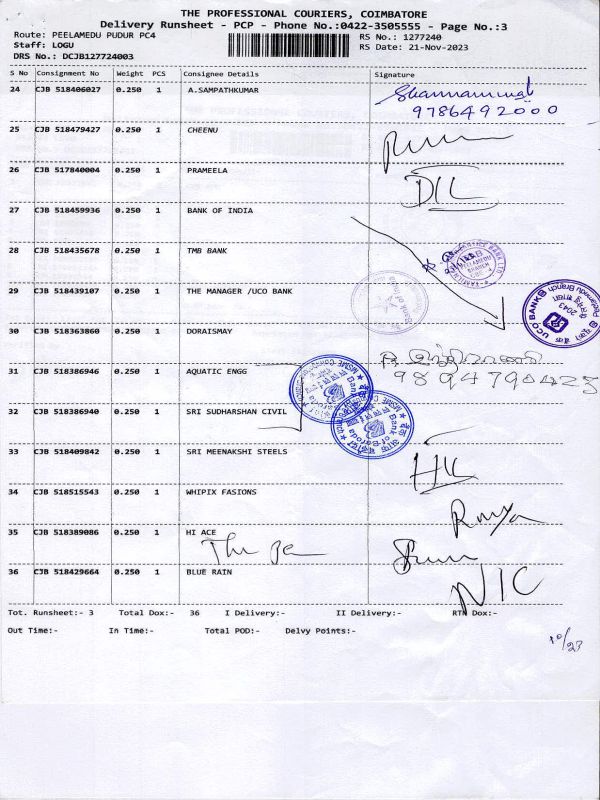 THE PROFESSIONAL COURIERS, COIMBATORE
Delivery Runsheet - PCP - Phone No.:0422-3505555 - Page No.:3
Route: PEELAMEDU PUDUR PC4 RS No.: 1277240
Staff: LOGU RS Date: 21-Nov-2023
DRS No.: DCJB127724003
S No Consignment No Weight PCS Consignee Details Signature
24 CJB 518406027 0.250 1 A.SAMPATHKUMAR
9786492000
25 CJB 518479427 0.250 1 CHEENU
26 CJB 517840004 0.250 1 PRAMEELA
27 CJB 518459936 0.250 1 BANK OF INDIA
28 CJB 518435678 0.250 1 TMB BANK
29 CJB 518439107 0.250 1 THE MANAGER /UCO BANK
UCO BANK
30 CJB 518363860 0.250 1 DORAISMAY
31 CJB 518386946 0.250 1 AQUATIC ENGG
9894790425
32 CJB 518386940 0.250 1 SRI SUDHARSHAN CIVIL
Bank of Baroda
33 CJB 518409842 0.250 1 SRI MEENAKSHI STEELS
34 CJB 518515543 0.250 1 WHIPIX FASIONS
35 CJB 518389086 0.250 1 HI ACE
36 CJB 518429664 0.250 1 BLUE RAIN
NIC
Tot. Runsheet:- 3 Total Dox:- 36 I Delivery:- II Delivery:- RTN Dox:-
Out Time:- In Time:- Total POD:- Delvy Points:-
10/23